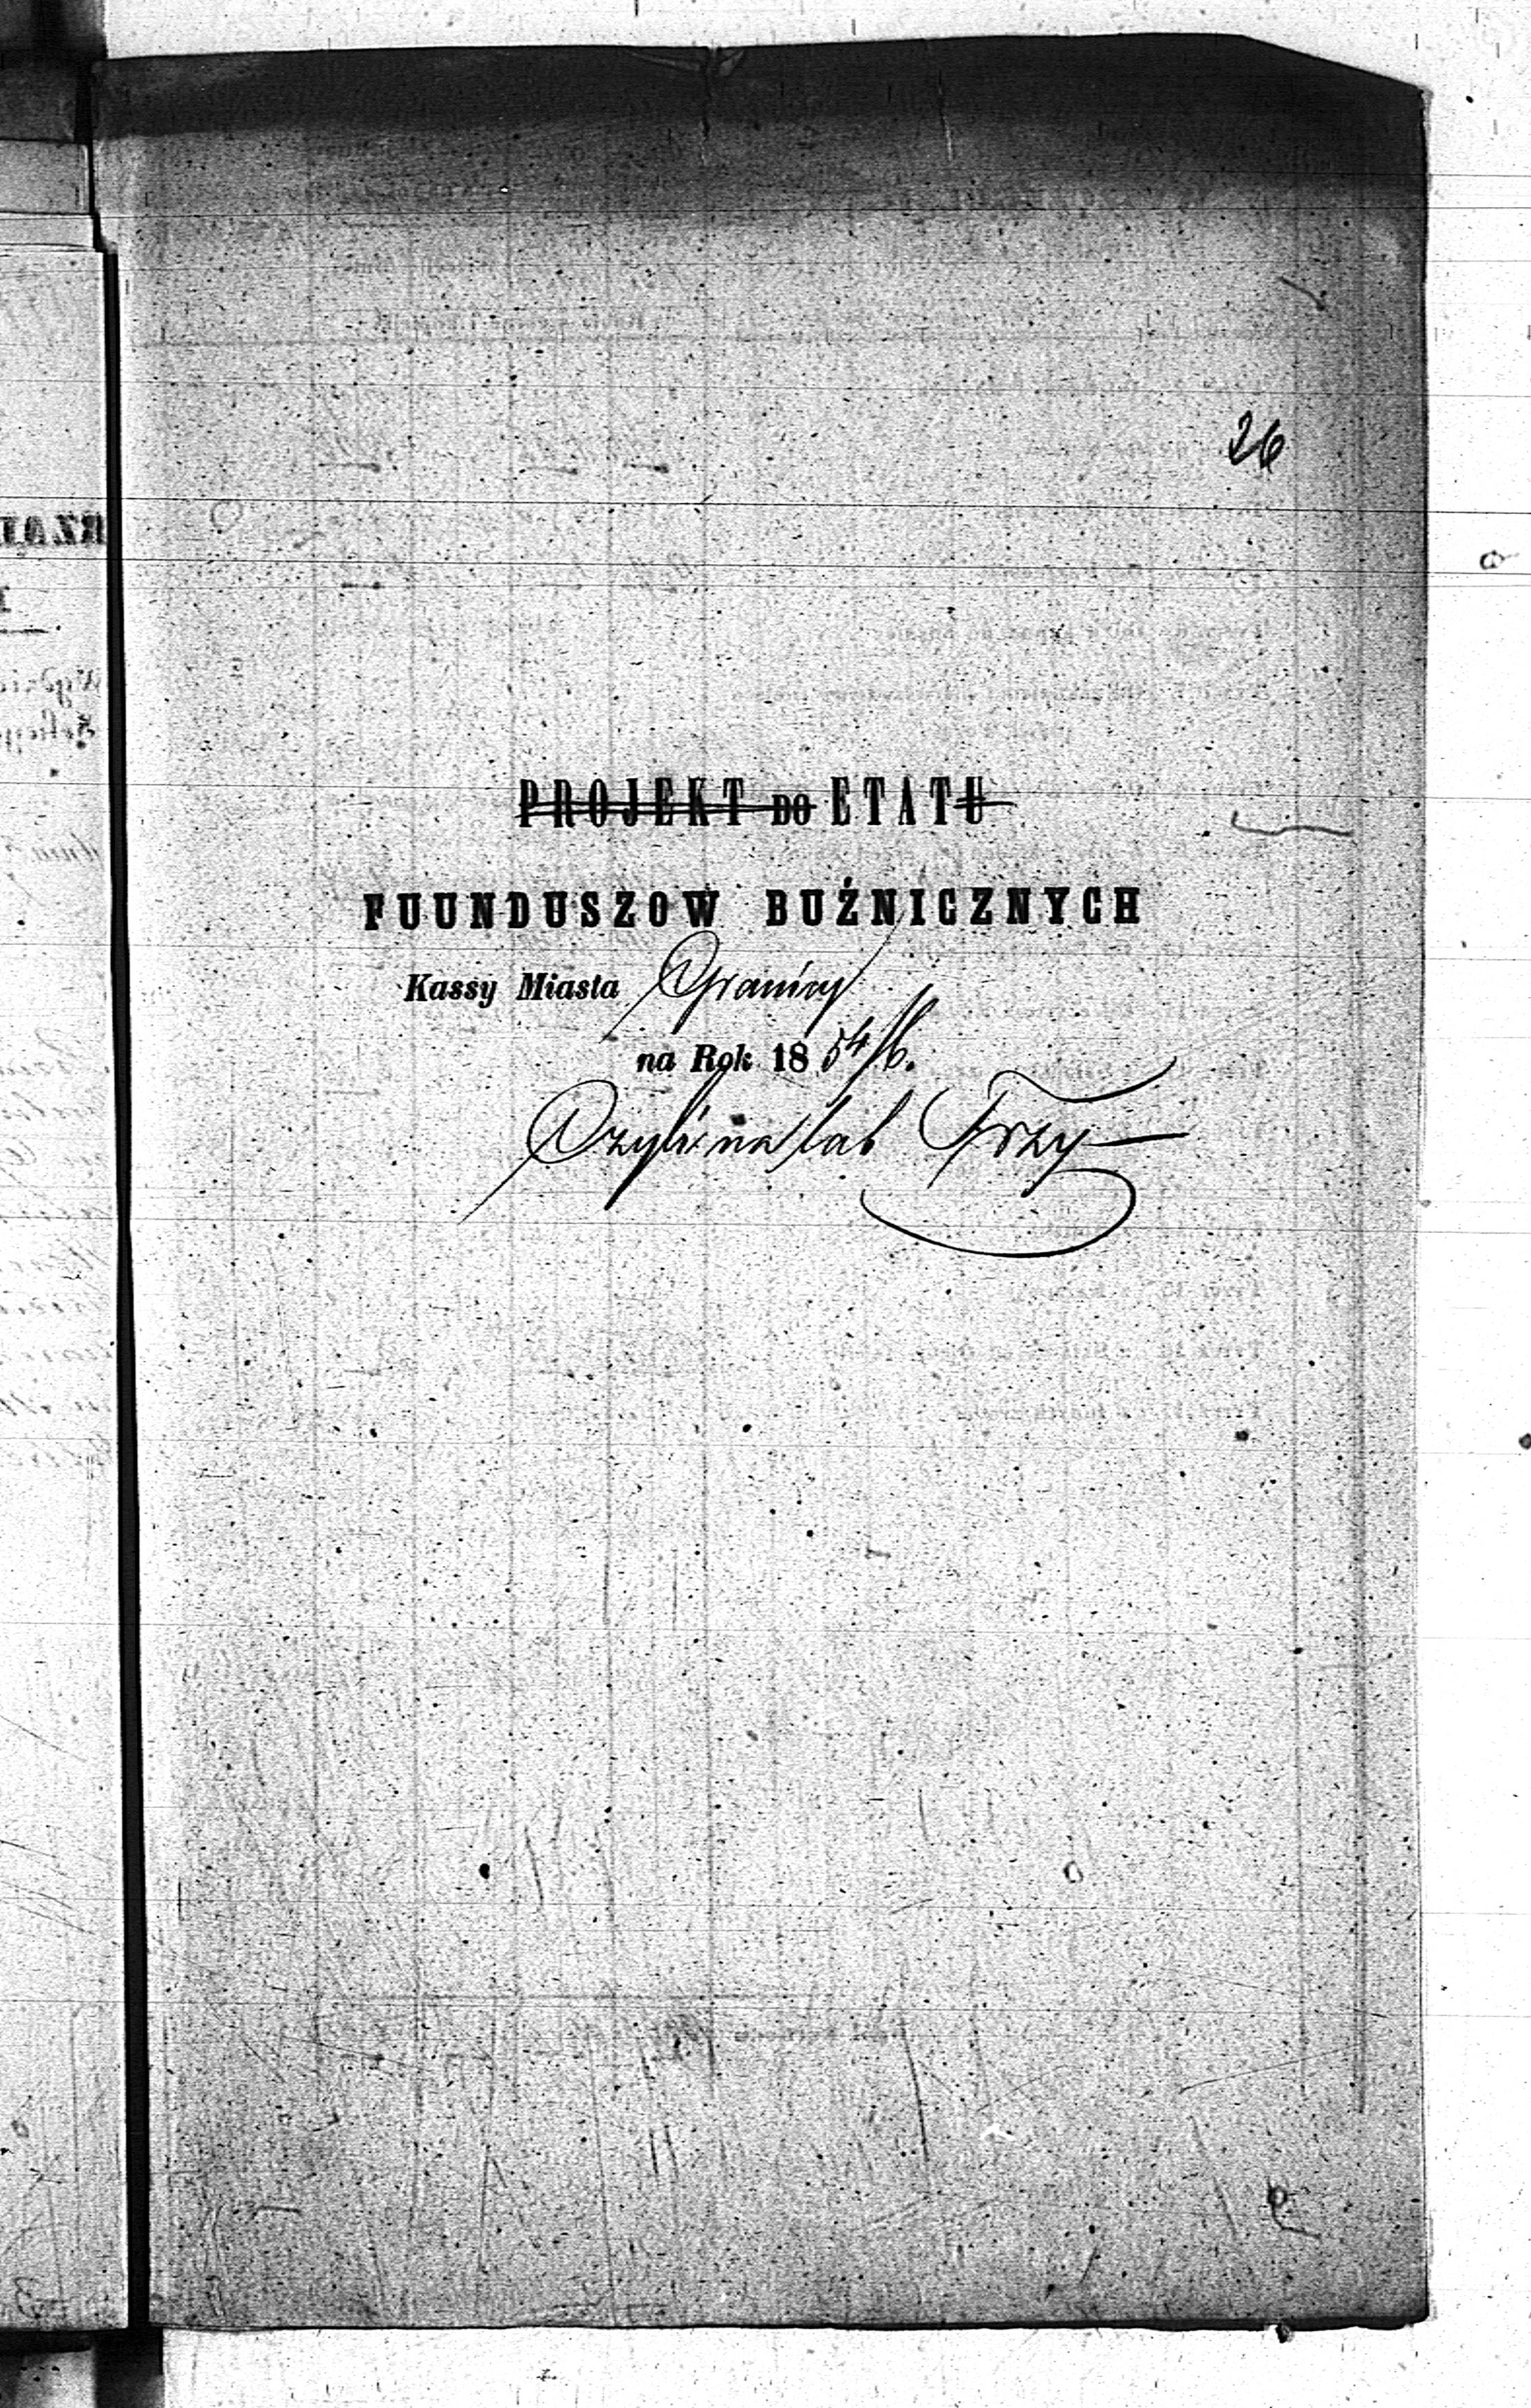 26
PROJEKT DO ETATU
FUUNDUSZOW BUŹNICZNYCH
Kassy Miasta Granicy
na Rok 1854/6.
Czyli na lat Trzy